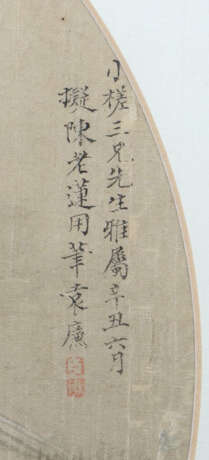 小槎三兄先生雅屬辛丑六月
擬陳老蓮用筆袁廉